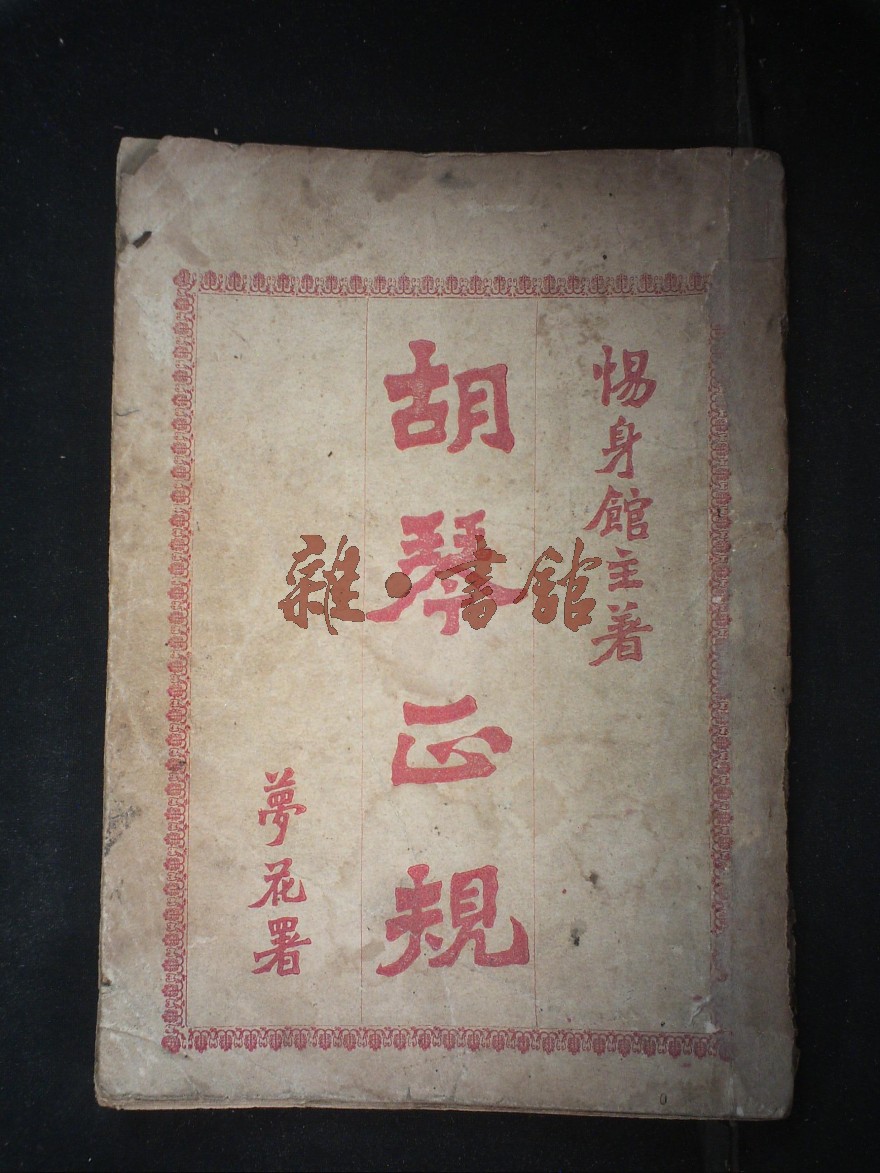 惕身館主著
胡琴正規
夢花署
雜·書館
0